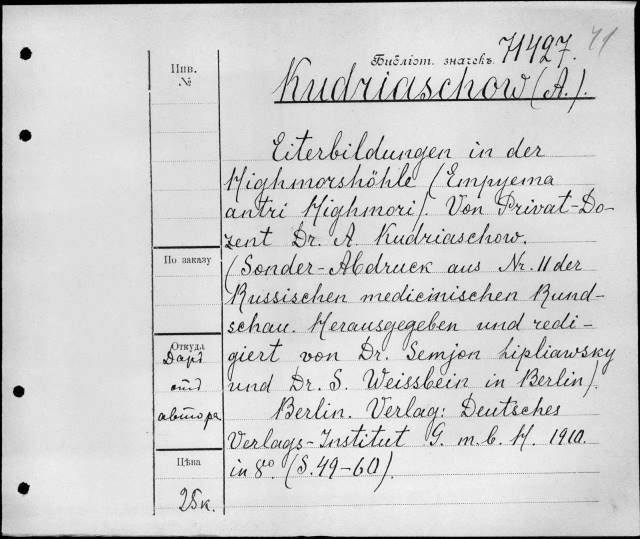 Библіот. значекъ. 71427. 71
Kudriaschow (A.).
Инв.
№
Eiterbildungen in der
Highmorshöhle (Empyema
antri Highmori). Von Privat-Do-
zent Dr. A. Kudriaschow.
По заказу
(Sonder-Abdruck aus Nr. 11 der
Russischen medicinischen Rund-
schau. Herausgegeben und redi-
Откуда
Даръ
отъ
автора
giert von Dr. Semjon Lipliawsky
und Dr. S. Weissbein in Berlin).
Berlin. Verlag: Deutsches
Verlags-Institut G. m. b. H. 1910.
Цѣна
25к.
in 8º. (S. 49-60).